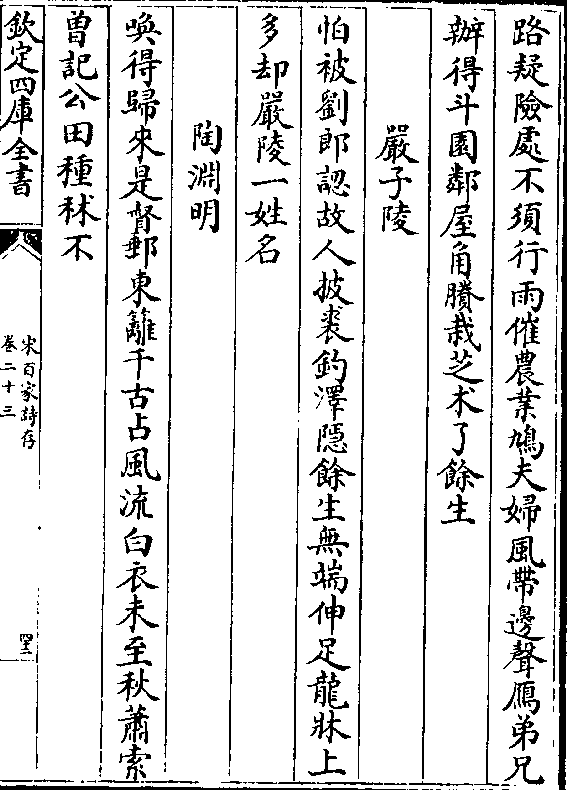 路疑險處不須行雨催農業鳩夫婦風帶邊聲鴈弟兄
辦得斗園鄰屋角賸栽芝术了餘生
嚴子陵
怕被劉郎認故人披裘釣澤隱餘生無端伸足龍牀上
多却嚴陵一姓名
陶淵明
喚得歸來是督郵東籬千古占風流白衣未至秋蕭索
曽記公田種秫不
欽定四庫全書
宋百家詩存
卷二十三